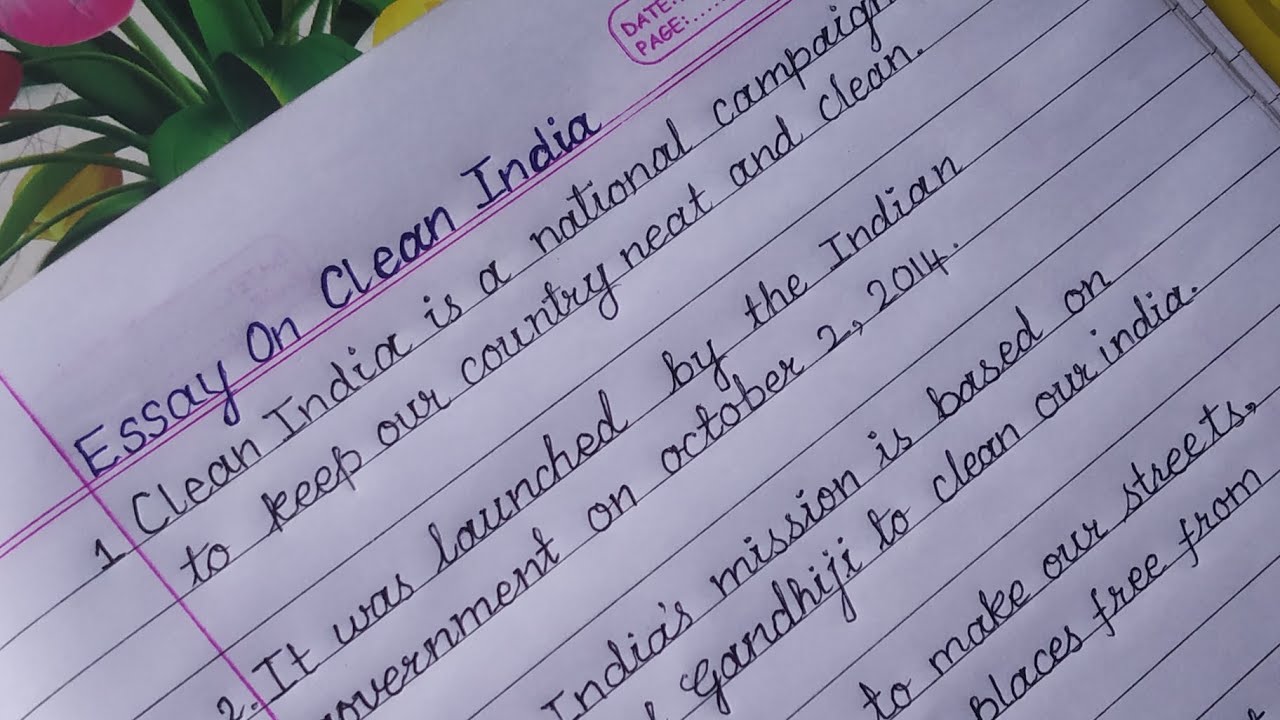 DATE:..
PAGE:......
Essay On Clean India
1 Clean India is a national campaign
to keep our country neat and clean.
2. It was launched by the Indian
government on october 2, 2014.
India's mission is based on
Gandhiji to clean our india.
to make our streets,
places free from